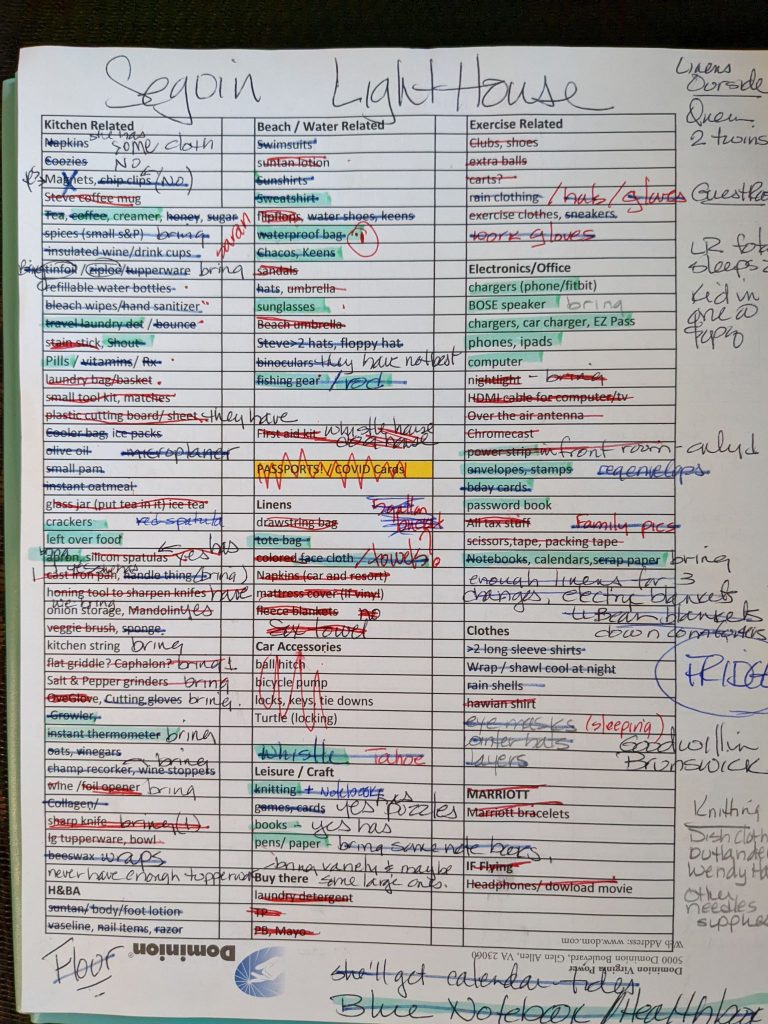 Seguin LightHouse
Kitchen Related
Napkins she has some cloth
Coozies NO
Magnets, chip clips (NO)
Steve coffee mug
Tea, coffee, creamer, honey, sugar
spices (small s&P) bring
insulated wine/drink cups
tinfoil /ziploc/tupperware bring
refillable water bottles
bleach wipes/hand sanitizer
travel laundry det / bounce
stain stick, Shout
Pills / vitamins/ Rx
laundry bag/basket
small tool kit, matches
plastic cutting board/ sheet they have
Cooler bag, ice packs
olive oil microplaner
small pam
instant oatmeal
glass jar (put tea in it) ice tea
crackers red spatula
left over food
apron, silicon spatulas yes has
cast iron pan, handle thing (bring)
honing tool to sharpen knifes have
we bring
onion storage, Mandolin yes
veggie brush, sponge
kitchen string bring
flat griddle? Caphalon? bring 1
Salt & Pepper grinders bring
OveGlove, Cutting gloves bring
Growler,
instant thermometer bring
oats, vinegars bring
champ recorker, wine stoppers
wine /foil opener bring
Collagen/
sharp knife bring (1)
lg tupperware, bowl
beeswax wraps
never have enough tupperware
H&BA
suntan/ body/foot lotion
vaseline, nail items, razor
Beach / Water Related
Swimsuits
suntan lotion
Sunshirts
Sweatshirt
saran
flipflops, water shoes, keens
waterproof bag
Chacos, Keens
Sandals
hats, umbrella
sunglasses
Beach umbrella
Steve>2 hats, floppy hat
binoculars they have not best
fishing gear / rod
First aid kit whistle house
PASSPORTS! / COVID Cards
Linens
drawstring bag
tote bag
colored face cloth / towels
Napkins (car and resort)
mattress cover (if vinyl)
fleece blankets no
Six towel
Car Accessories
ball hitch
bicycle pump
locks, keys, tie downs
Turtle (locking)
Whistle Tahoe
Leisure / Craft
knitting + Notebooks
games, cards yes puzzles
books - yes has
pens/ paper bring some note books,
bring variety & maybe
some large ones.
Buy there
laundry detergent
TP
PB, Mayo
Exercise Related
Clubs, shoes
extra balls
carts?
rain clothing / hats / gloves
exercise clothes, sneakers
work gloves
Electronics/Office
chargers (phone/fitbit)
BOSE speaker bring
chargers, car charger, EZ Pass
phones, ipads
computer
nightlight - bring
HDMI cable for computer/tv
Over the air antenna
Chromecast
power strip in front room - only 1
envelopes, stamps reg envelops
bday cards
password book
All tax stuff family pics
scissors,tape, packing tape
Notebooks, calendars,scrap paper bring
enough linens for 3
changes electric blankets
LL Bean blankets
down comforters
Clothes
>2 long sleeve shirts
Wrap / shawl cool at night
rain shells
hawian shirt
eye masks (sleeping)
winter hats
layers
MARRIOTT
Marriott bracelets
IF Flying
Headphones/ dowload movie
Linens
Outside
Queen
2 twins
LR
sleeps 2
Kid in
FRIDGE
Goodwill in
Brunswick
Knitting
Dishcloth
Outlander
Wendy
other
needles
supplies
Floor
Dominion®
Dominion Virginia Power
5000 Dominion Boulevard, Glen Allen, VA 23060
Web Address: www.dom.com
she'll get calendar tides
Blue Notebook / Healthbox